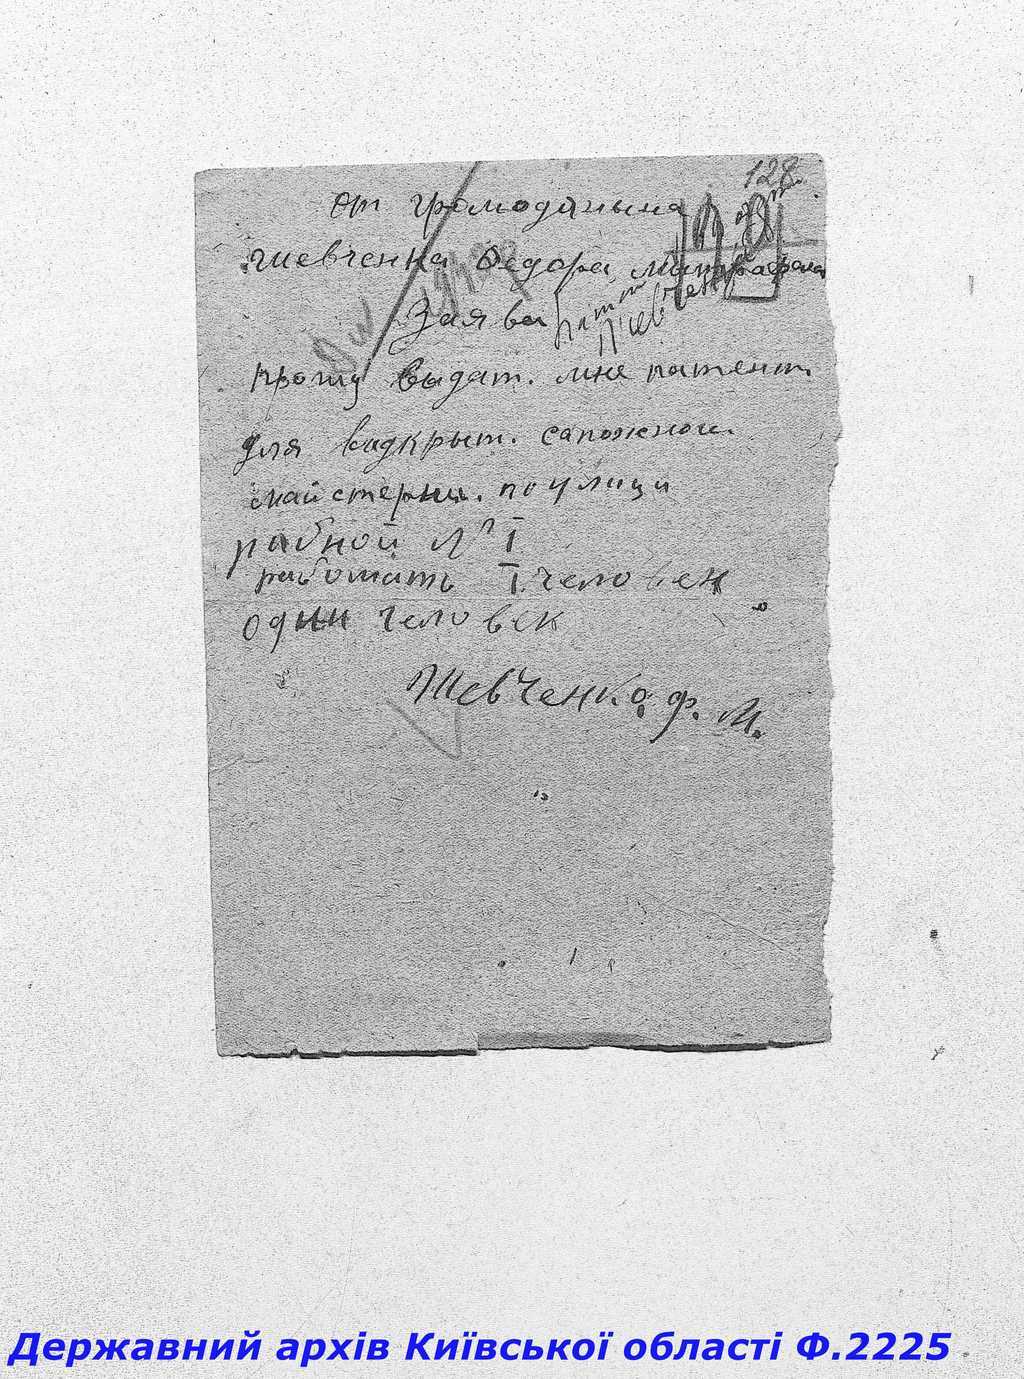 128
от громодянына
Шевченка Федора
Заява
Прошу выдат. мне патент
для видкрыт. сапожной
майстерни. по улици
рабной № I
работать I. человек
один человек
Шевченко. Ф. М.
Державний архів Київської області Ф.2225